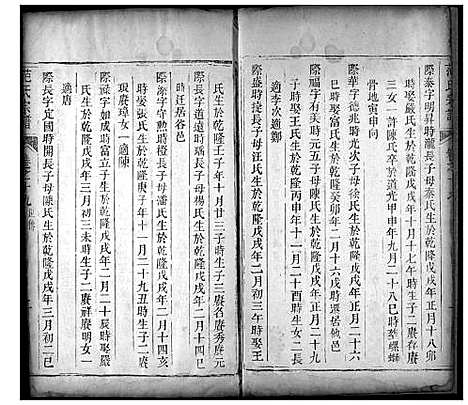 際泰字明昇時瀧長子母秦氏生於乾隆戊戌年正月十八卯
時娶嚴氏生於乾隆己亥年十月十七午時生子一賡
三女一許陳氏卒於道光甲申年九月二十八巳時葬螺螄
骨地寅申向
際華字德兆時光次子母徐氏生於乾隆戊戌年正月二十六
巳時娶富氏生於乾隆癸卯年二月十六戌時票居攸邑
際福字有美時元三子母陳氏生於乾隆戊戌年正月二十九
時娶王氏生於乾隆丙申年十一月二十酉時生子 女二
適李次適鄭
際盛時捷長子母汪氏生於乾隆戊戌年二月初三午時娶王
氏生於乾隆壬子年十月廿三子賡名賡秀賡元
際長字道遠時瑀長子母楊氏生於乾隆戊戌年二月十四巳
時迁居谷邑
際深字守勲時橙長子母潘氏生於乾隆戊戌年二月十四亥
時娶張氏生於乾隆庚子年十一月二十九丑時生子二賡
現賡璋女一適陳
際祿字如成時樹長子母田氏生於乾隆戊戌年二月二十娶嚴
氏生於乾隆庚戌年三月初三未時生子二賡祥賡明女一
適唐
際長字定國時開長子母陳氏生於乾隆戊戌年三月初二巳
范氏宗譜